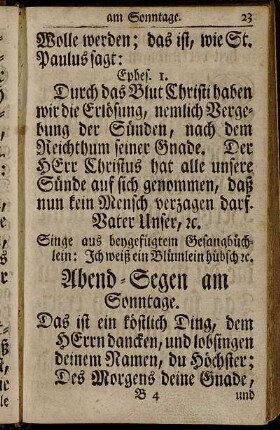 am Sonntage. 23
Wolle werden; das ist, wie St.
Paulus sagt:
Ephes. 1.
Durch das Blut Christi haben
wir die Erlösung, nemlich Verge-
bung der Sünden, nach dem
Reichthum seiner Gnade. Der
HErr Christus hat alle unsere
Sünde auf sich genommen, daß
nun kein Mensch verzagen darf.
Vater Unser, ꝛc.
Singe aus beygefügtem Gesangbüch-
lein: Ich weiß ein Blümlein hübsch ꝛc.
Abend-Segen am
Sonntage.
Das ist ein köstlich Ding, dem
HErrn dancken, und lobsingen
deinem Namen, du Höchster;
Des Morgens deine Gnade,
B 4 und